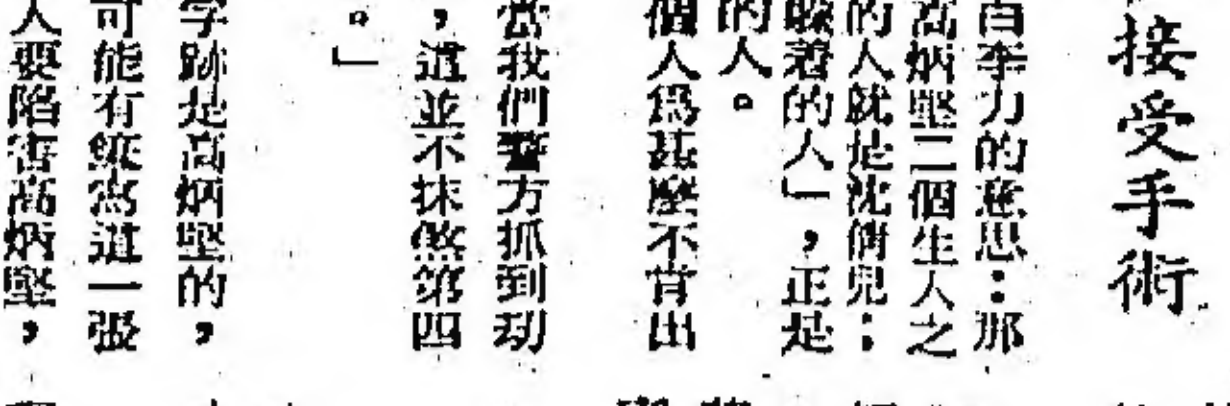 接受手術
白李力的意思：那
高炳堅二個生人之
的人就是沈倩兒；
躲着的人」，正是
的人。
個人爲甚麽不肯出
當我們警方抓到刧
，這並不抹煞第四
。」
字跡是高炳堅的，
可能有線寫這一張
人要陷害高炳堅，